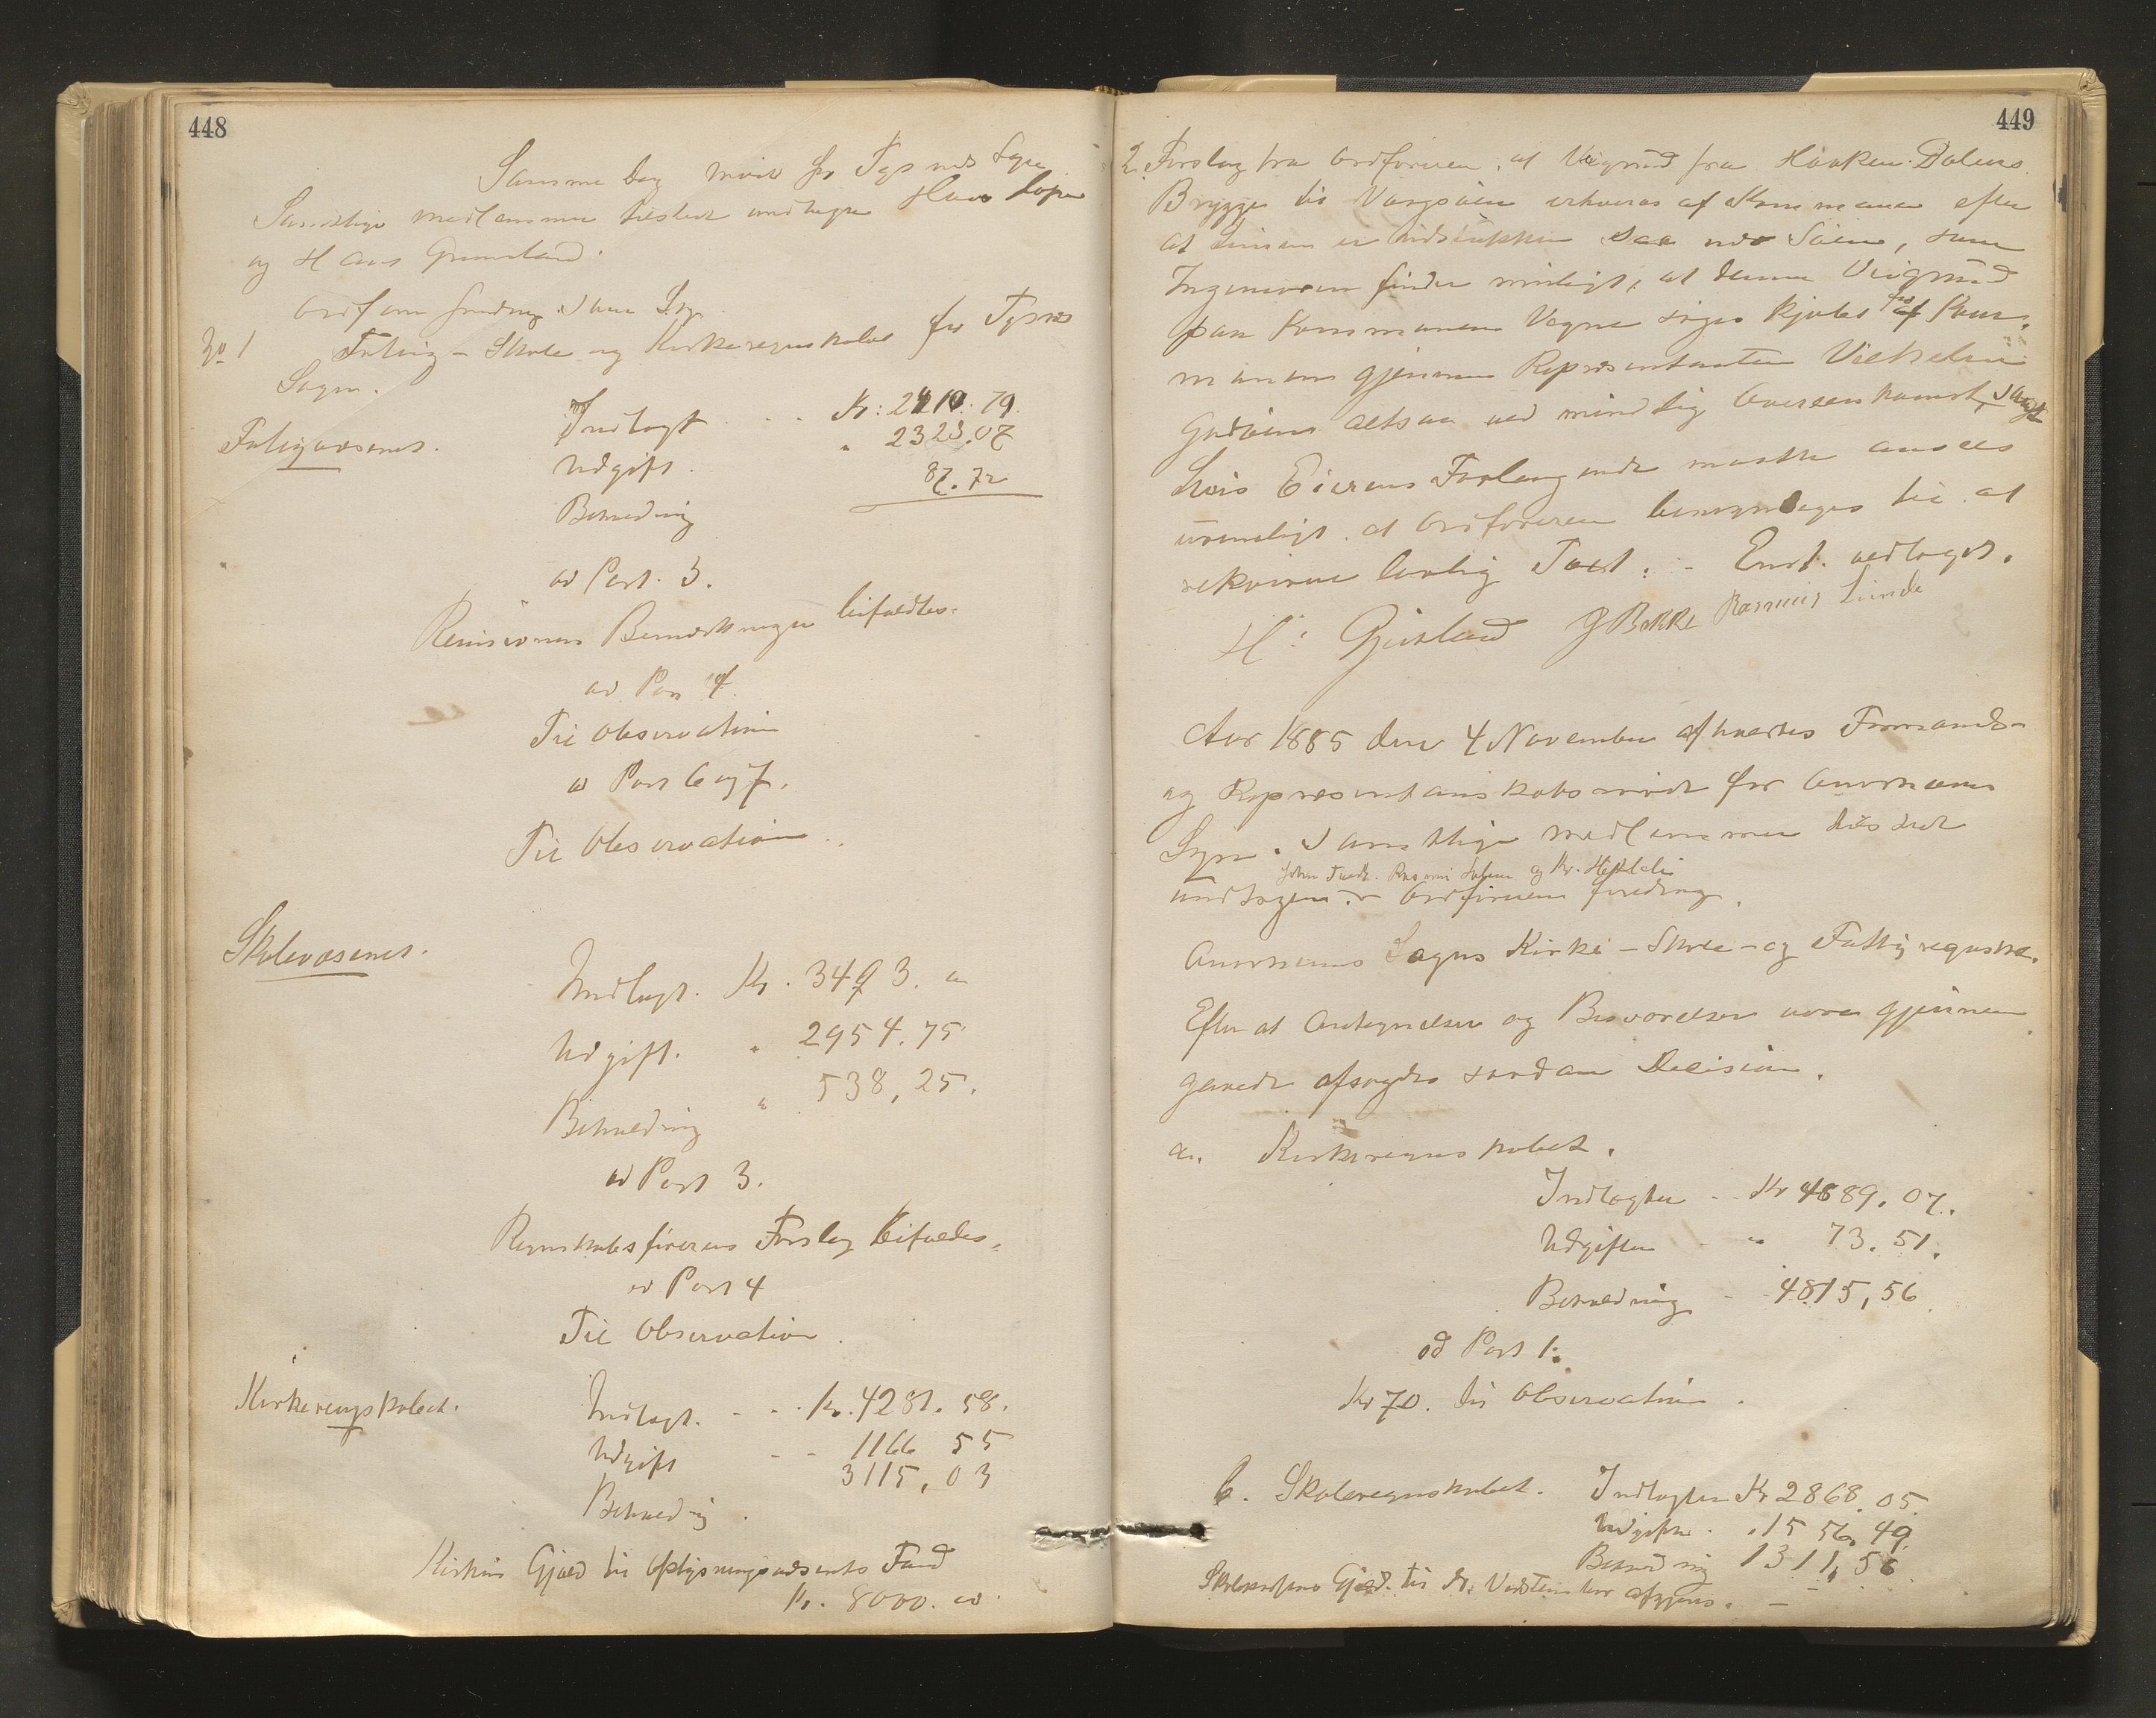 448
Samme Dag møde for Tysnes Sogn
Samtlige medlemmer tilstede undtagen Hans
og Hans
Ordføreren
No 1 Fattig- Skole og Kirkeregnskabet for Tysnes
Sogn.
Fattigvæsenet.
Indtægt Kr: 2410.79.
Udgift. " 2323.07
Beholdning 87.72
ad Post. 3.
Revisionens Bemærkninger bifaldtes.
ad Post 4.
Til Observation
ad Post 6 og 7.
Til Observation.
Skolevæsenet.
Indtægt. Kr. 3493. "
Udgift. " 2954.75
Beholdning " 538,25.
ad Post 3.
Regnskabsførerens Forslag bifaldes.
ad Post 4
Til Observation.
Kirkeregnskabet.
Indtægt. - - Kr. 4281.58.
Udgift - - 1166 55
Beholdning. 3115,03
Kirkens Gjæld til Oplysningsvæsenets Fond
Kr. 8000.
449
2. Forslag fra Ordføreren, at Veigrund fra Haaken Dalens
Brygge til Vaagsøien erhverves af Kommunen efter
at Linien er udstukken saa nær Søien, som
Ingeniøren finder muligt, at denne Veigrund
paa Kommunens Vegne søges kjøbt af Kom-
munen gjennem Repræsentanten Vilhelm
altsaa ved mindelig Overenskomst, samt
hvis Eierens Forlangende maatte ansees
urimeligt, at Ordføreren bemyndiges til at
rekvirere lovlig Taxt. - Enst. vedtaget.
H. Gjerstad J Bakke Rasmus Linde
Aar 1885 den 4 November afholdtes Formands-
og Repræsentantskabsmøde for Onarheims
Sogn. Samtlige medlemmer tilstede
undtagen John Tvedt. og Kr. - Ordføreren foredrog.
Onarheims Sogns Kirke- Skole- og Fattigregnskab.
Efter at Antegnelser og Besvarelser vare gjennem-
gaaede afsagdes saadan Decision.
a. Kirkeregnskabet.
Indtægter - Kr 4889.07.
Udgifter - " 73.51.
Beholdning - 4815,56
ad Post 1.
Kr 70. til Observation.
b. Skoleregnskabet. Indtægter Kr 2868.05
Udgifter. 1556.49.
Beholdning 1311,56
Skolekassens Gjæld til